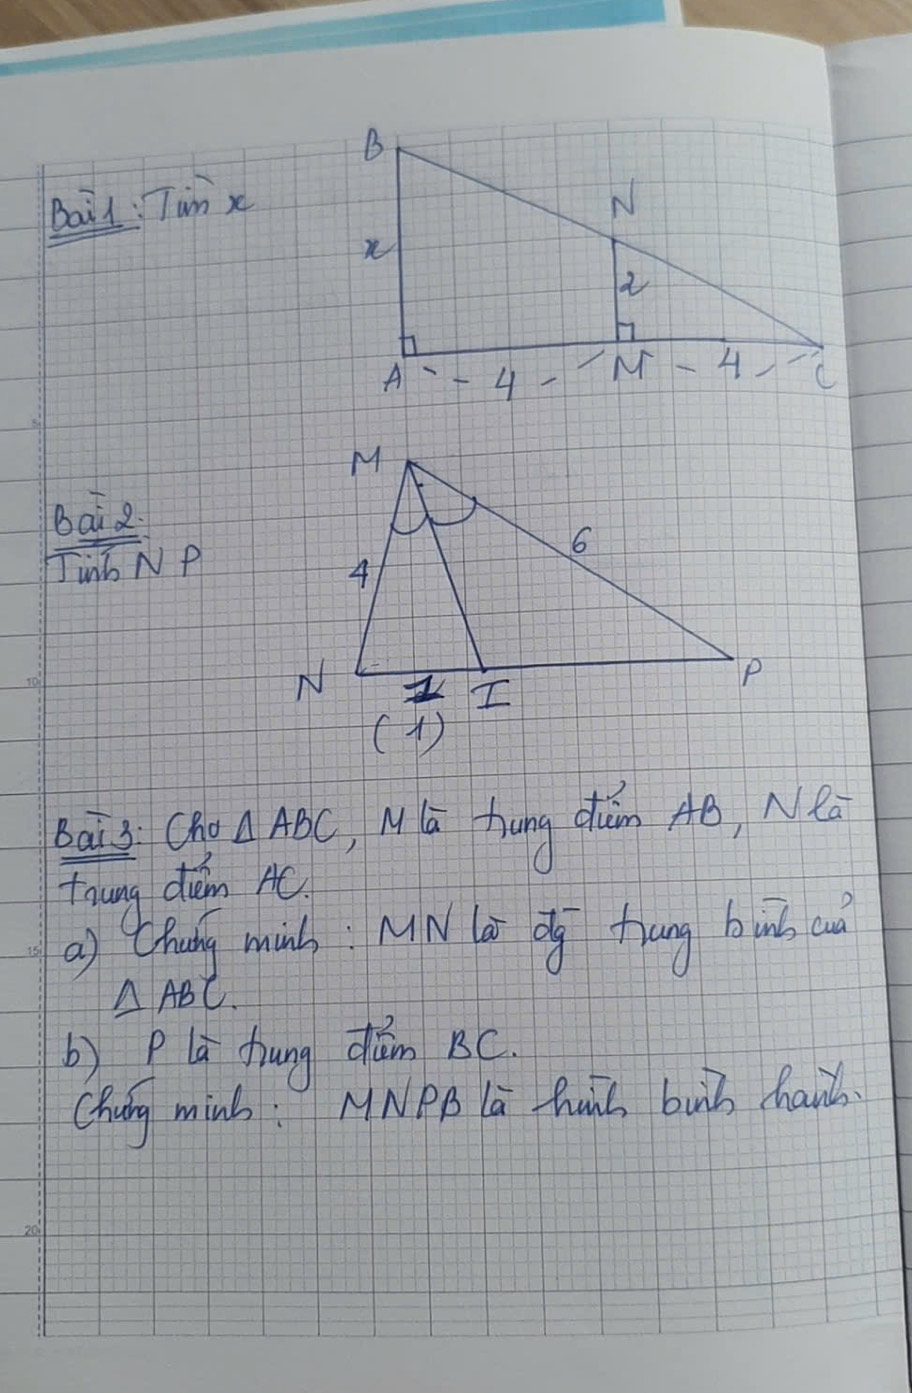 B
Bài 1: Tìm x
N
x
2
A - - 4 - - M - 4 - - C
M
Bài 2:
Tính NP
6
4
N
1
I
P
(1)
Bài 3: Cho Δ ABC, M là trung điểm AB, N là
trung điểm AC.
a) Chứng minh: MN là đg trung bình của
Δ ABC.
b) P là trung điểm BC.
Chứng minh: MNPB là hình bình hành.
5
10
15
20